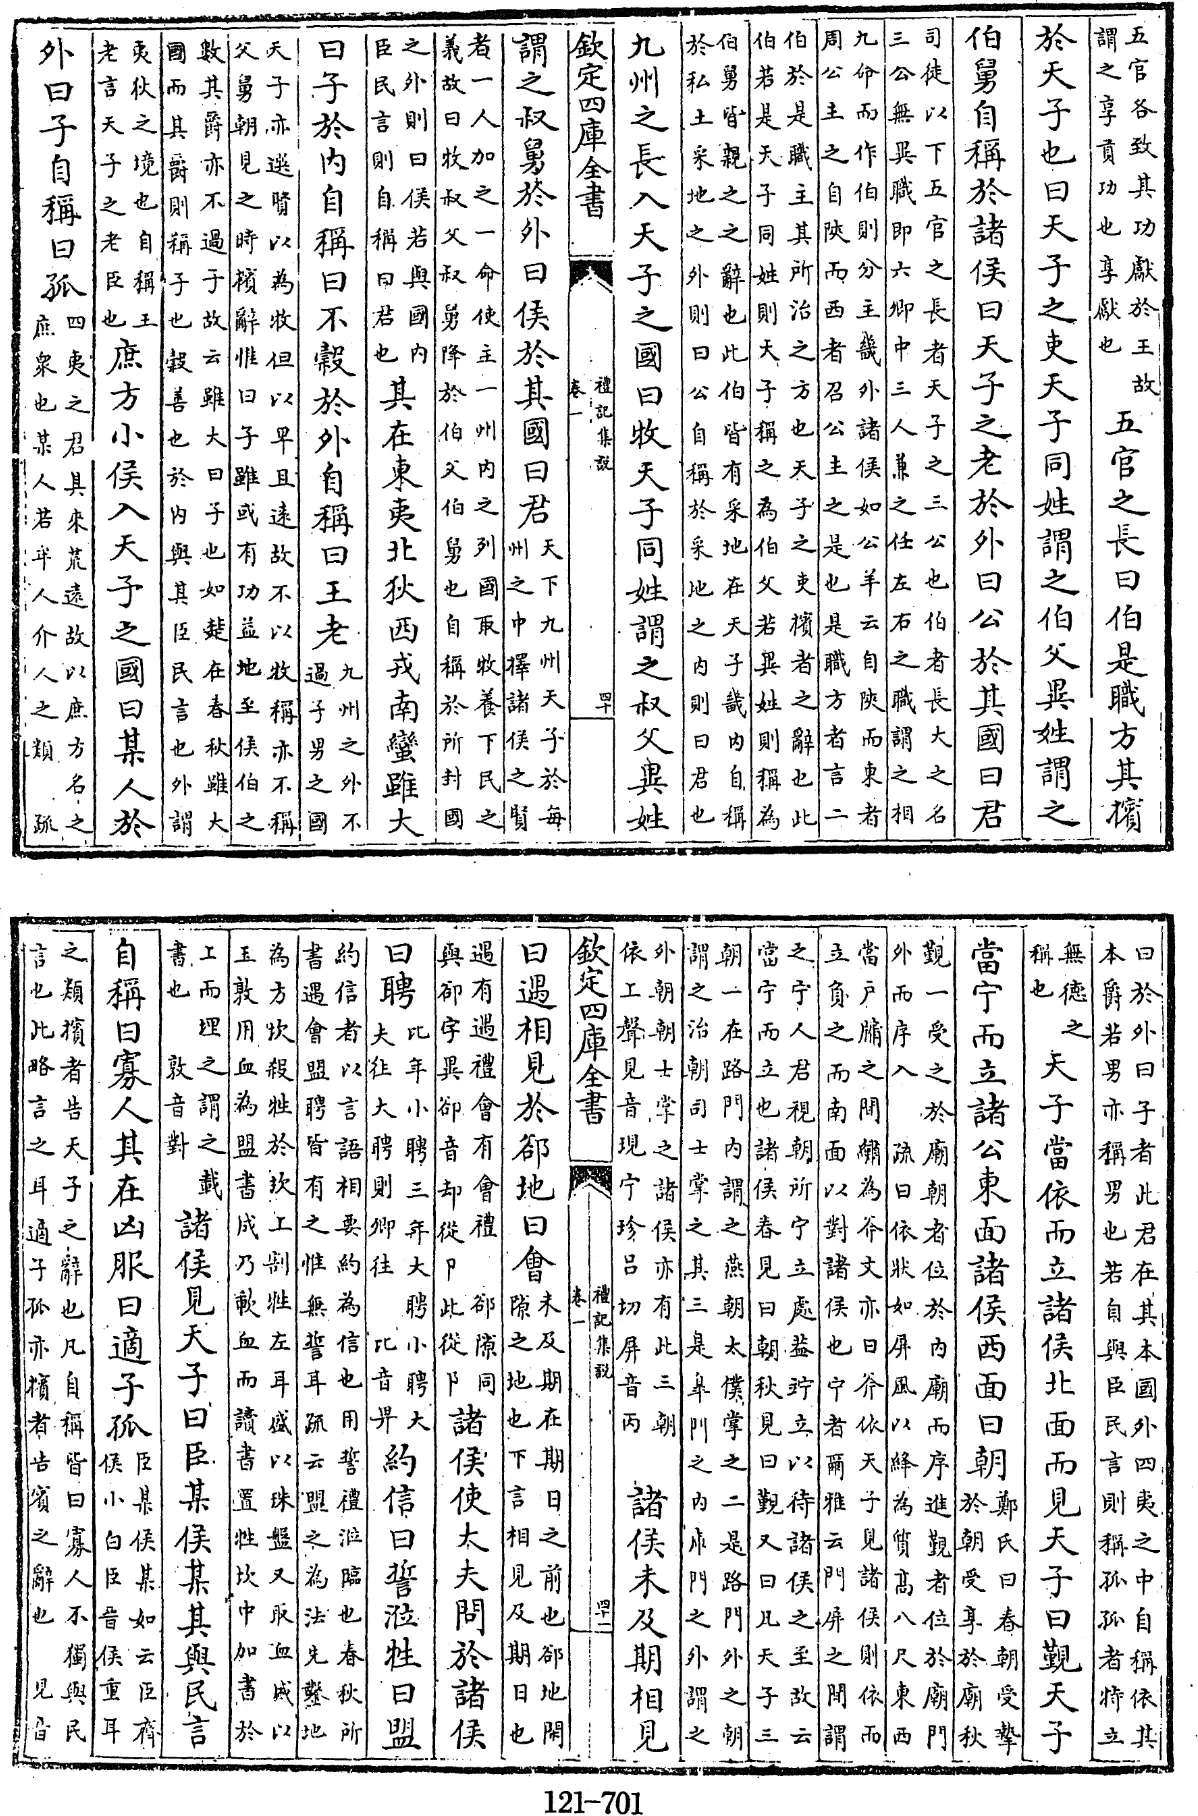 五官各致其功獻於王故
謂之享貢功也享獻也
五官之長曰伯是職方其擯
於天子也曰天子之吏天子同姓謂之伯父異姓謂之
伯舅自稱於諸侯曰天子之老於外曰公於其國曰君
司徒以下五官之長者天子之三公也伯者長大之名
三公無異職即六卿中三人兼之任左右之職謂之相
九命而作伯則分主畿外諸侯如公羊云自陝而東者
周公主之自陝而西者召公主之是也是職方者言二
伯於是職主其所治之方也天子之吏擯者之辭也此
伯若是天子同姓則天子稱之為伯父若異姓則稱為
伯舅皆親之之辭也此伯皆有采地在天子畿內自稱
於私土采地之外則曰公自稱於采地之內則曰君也
九州之長入天子之國曰牧天子同姓謂之叔父異姓
欽定四庫全書
禮記集說
卷一
四十
謂之叔舅於外曰侯於其國曰君
天下九州天子於每
州之中擇諸侯之賢
者一人加之一命使主一州內之列國取牧養下民之
義故曰牧叔父叔舅降於伯父伯舅也自稱於所封國
之外則曰侯若與國內
臣民言則自稱曰君也
其在東夷北狄西戎南蠻雖大
曰子於內自稱曰不穀於外自稱曰王老
九州之外不
過子男之國
天子亦選賢以為牧但以卑且遠故不以牧稱亦不稱
父舅朝見之時擯辭惟曰子雖或有功益地至侯伯之
數其爵亦不過子故云雖大曰子也如楚在春秋雖大
國而其爵則稱子也穀善也於內與其臣民言也外謂
夷狄之境也自稱王
老言天子之老臣也
庶方小侯入天子之國曰某人於
外曰子自稱曰孤
四夷之君其來荒遠故以庶方名之
庶衆也某人若牟人介人之類 孤
曰於外曰子者此君在其本國外四夷之中自稱依其
本爵若男亦稱男也若自與臣民言則稱孤孤者特立
無德之
稱也
天子當依而立諸侯北面而見天子曰覲天子
當宁而立諸公東面諸侯西面曰朝
鄭氏曰春朝受摯
於朝受享於廟秋
覲一受之於廟朝者位於內廟而序進覲者位於廟門
外而序入 疏曰依狀如屏風以絳為質高八尺東西
當戶牖之間繡為斧文亦曰斧依天子見諸侯則依而
立負之而南面以對諸侯也宁者爾雅云門屏之間謂
之宁人君視朝所宁立處蓋竚立以待諸侯之至故云
當宁而立也諸侯春見曰朝秋見曰覲又曰凡天子三
朝一在路門內謂之燕朝太僕掌之二是路門外之朝
謂之治朝司士掌之其三是臯門之內庫門之外謂之
外朝朝士掌之諸侯亦有此三朝
依上聲見音現宁珍呂切屏音丙
諸侯未及期相見
欽定四庫全書
禮記集說
卷一
四十一
曰遇相見於郤地曰會
未及期在期日之前也郤地閒
隙之地也下言相見及期日也
遇有遇禮會有會禮 郤隙同
與卻字異卻音却從卩此從阝
諸侯使大夫問於諸侯
曰聘
比年小聘三年大聘小聘大
夫往大聘則卿往 比音畀
約信曰誓涖牲曰盟
約信者以言語相要約為信也用誓禮涖臨也春秋所
書遇會盟聘皆有之惟無誓耳疏云盟之為法先鑿地
為方坎殺牲於坎上割牲左耳盛以珠盤又取血盛以
玉敦用血為盟書成乃歃血而讀書置牲坎中加書於
上而埋之謂之載
書也 敦音對
諸侯見天子曰臣某侯某其與民言
自稱曰寡人其在凶服曰適子孤
臣某侯某如云臣齊
侯小白臣晉侯重耳
之類擯者告天子之辭也凡自稱皆曰寡人不獨與民
言也此略言之耳適子孤亦擯者告賓之辭也 見音
121-701